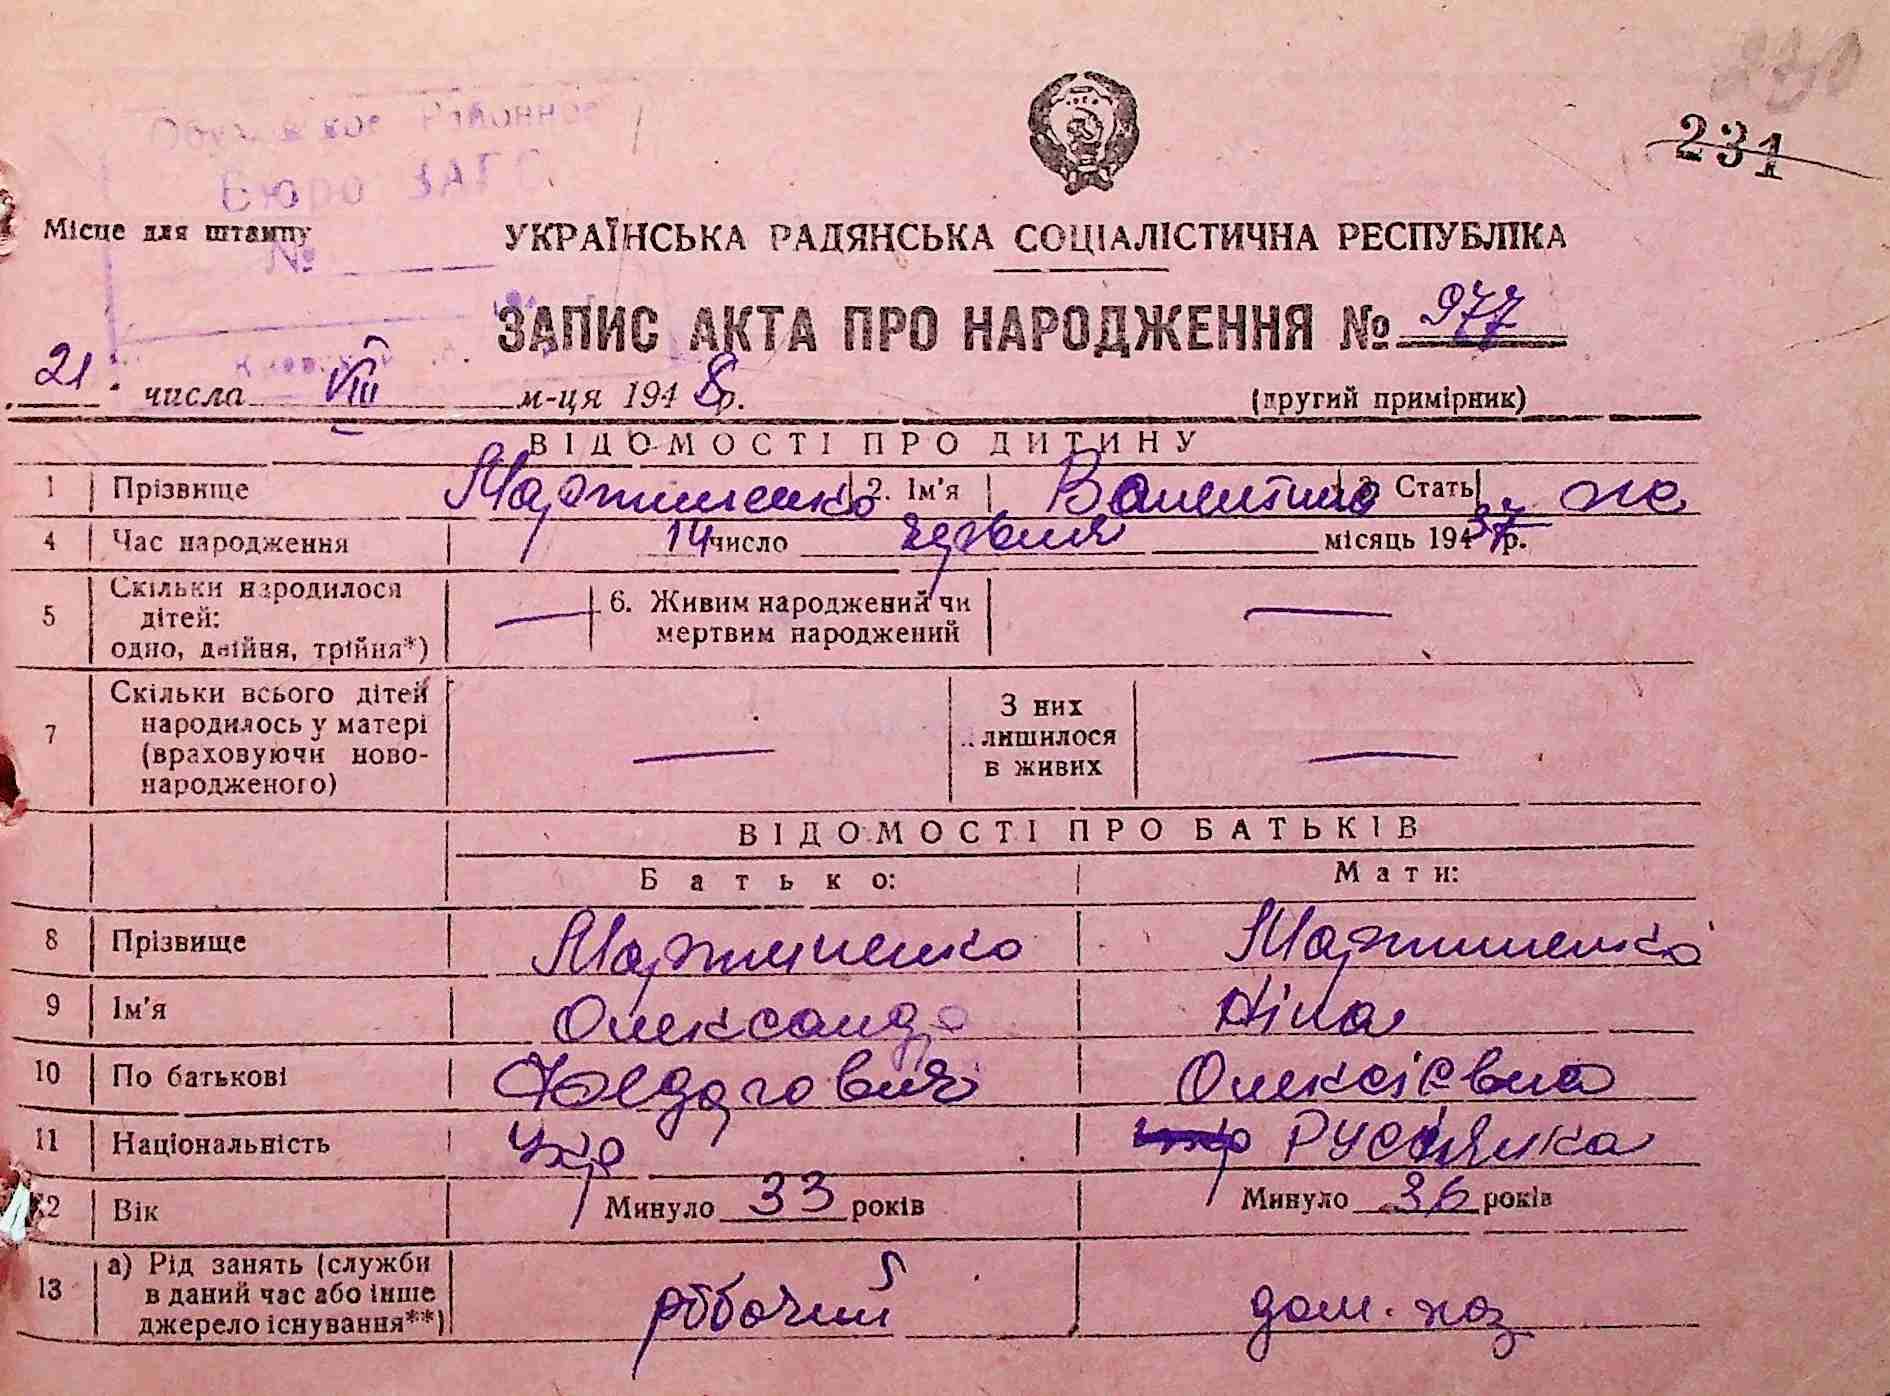 230
231
Районное
Бюро ЗАГС
Місце для штампу
№
УКРАЇНСЬКА РАДЯНСЬКА СОЦІАЛІСТИЧНА РЕСПУБЛІКА
ЗАПИС АКТА ПРО НАРОДЖЕННЯ № 977
21 числа VIII м-ця 1948 р. (другий примірник)
ВІДОМОСТІ ПРО ДИТИНУ
1 Прізвище Мартиненко 2. Ім'я Валентина 3. Стать ж
4 Час народження 14 число червня місяць 194 37 р.
5 Скільки народилося дітей: одно, двійня, трійня*) — 6. Живим народжений чи мертвим народжений —
7 Скільки всього дітей народилось у матері (враховуючи ново-народженого) — З них лишилося в живих —
ВІДОМОСТІ ПРО БАТЬКІВ
Батько: Мати:
8 Прізвище Мартиненко Мартиненко
9 Ім'я Олександр Ніна
10 По батькові Федорович Олексієвна
11 Національність Укр Руснянка
12 Вік Минуло 33 років Минуло 36 років
13 а) Рід занять (служби в даний час або інше джерело існування**) робочий дом. хоз